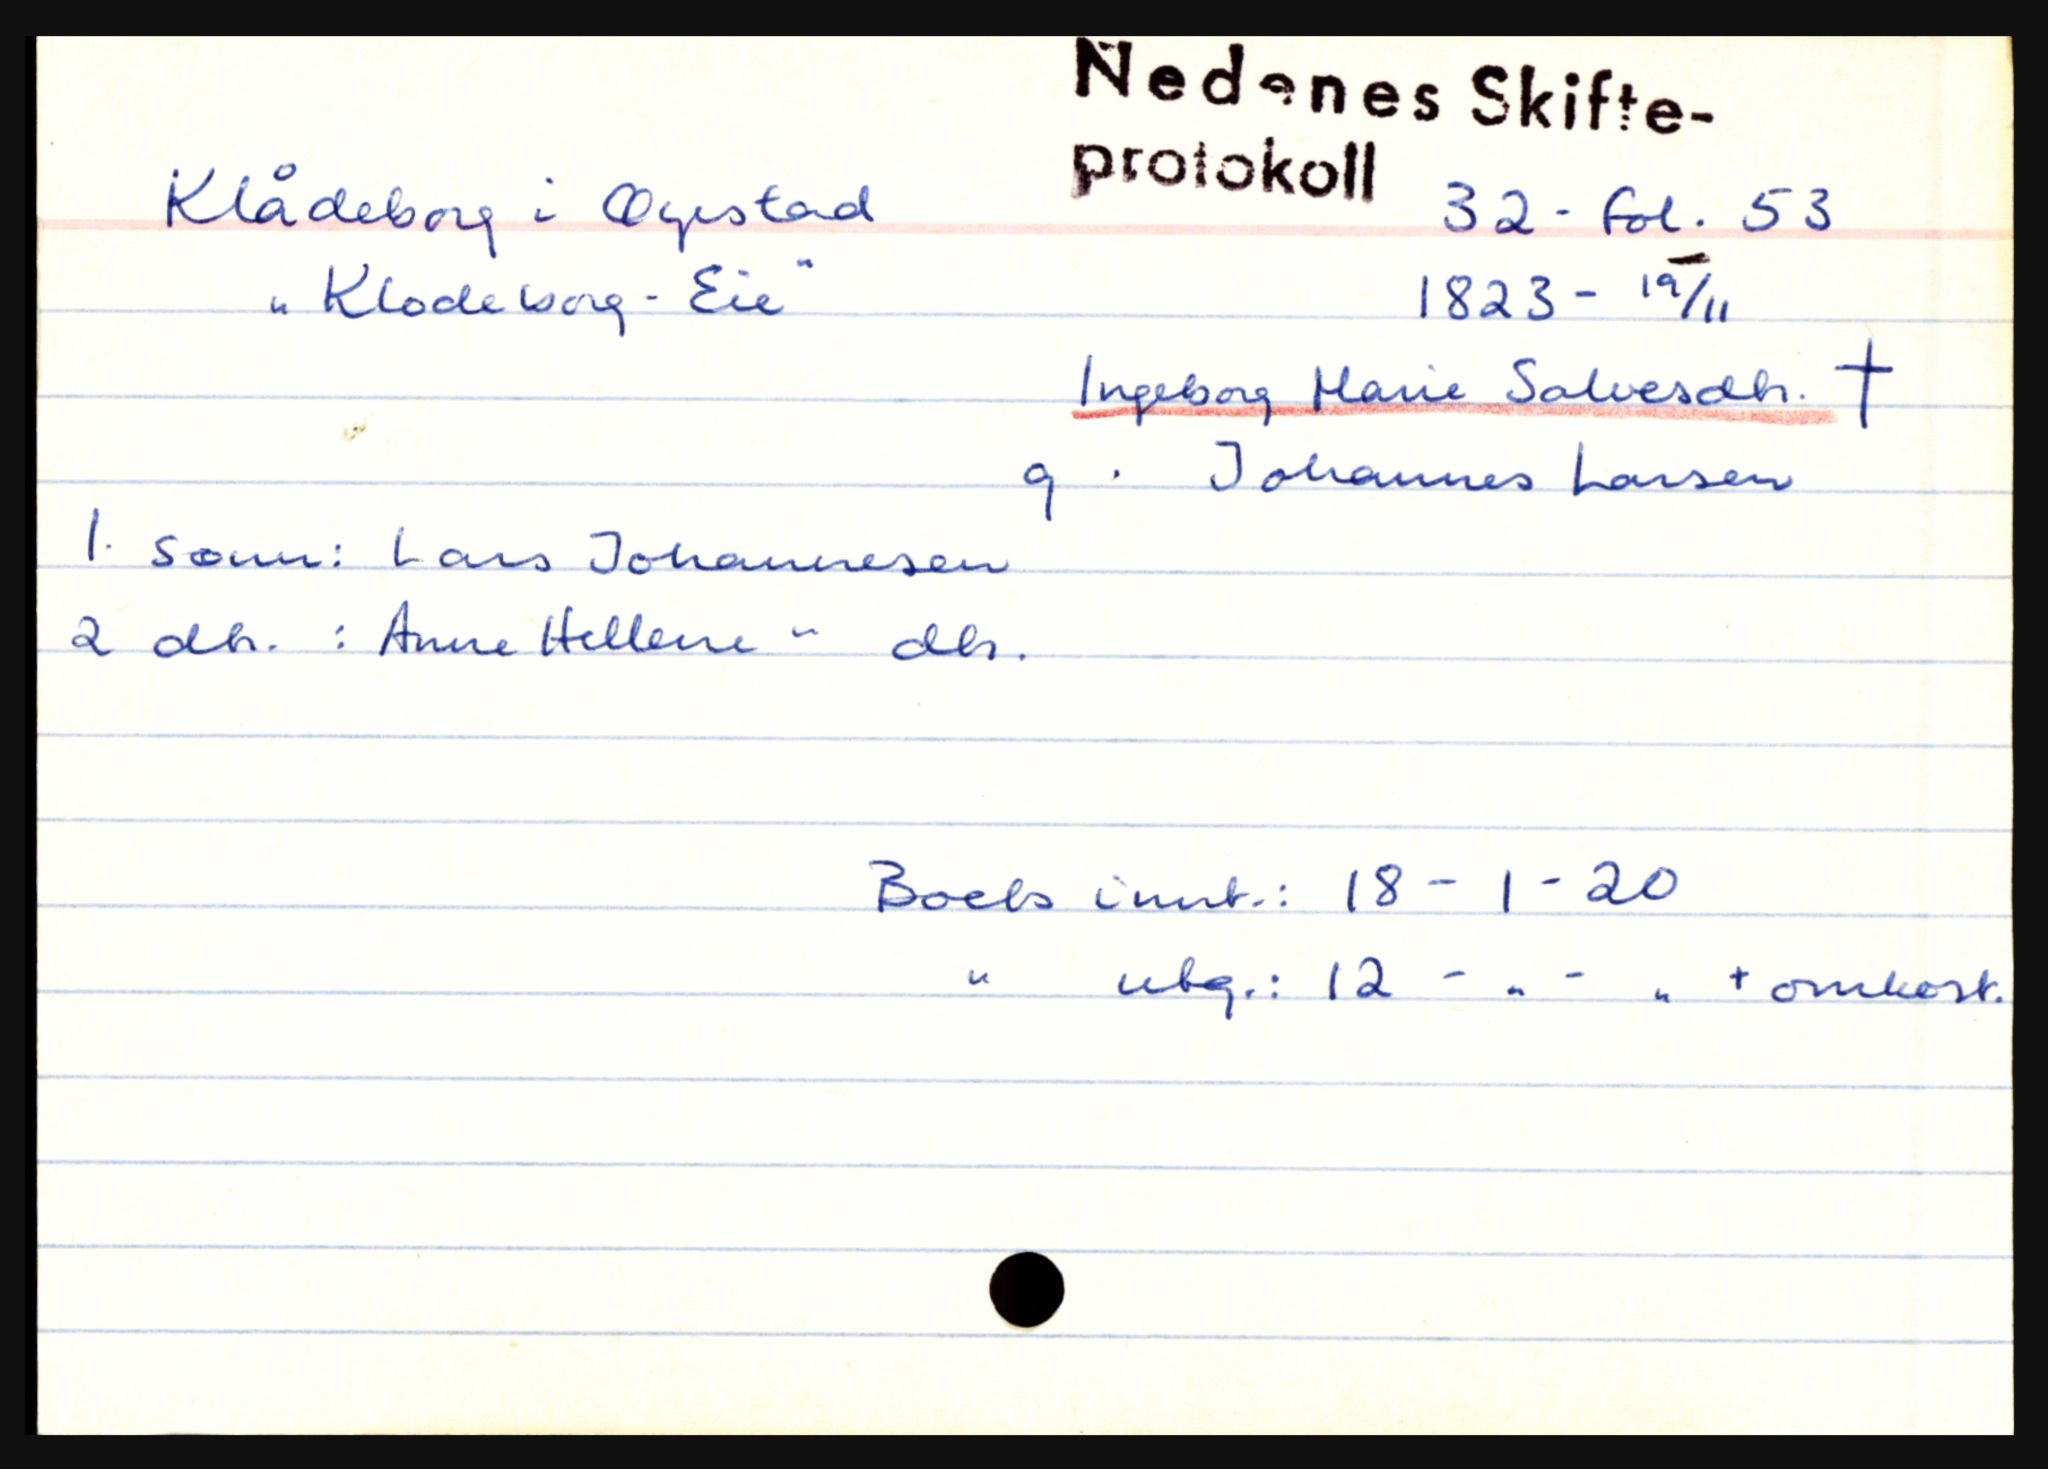 Nedenes Skifte-
protokoll
Klådeborg i Øyestad
32 - fol. 53
"Klodeborg - Eie"
1823 - 19/11
Ingeborg Marie Salvesdtr. †
g. Johannes Larsen
1. sønn: Lars Johannesen
2 dtr. : Anne Hellene " dtr.
Boets innt.: 18 - 1 - 20
" utg.: 12 - " - " + omkost.